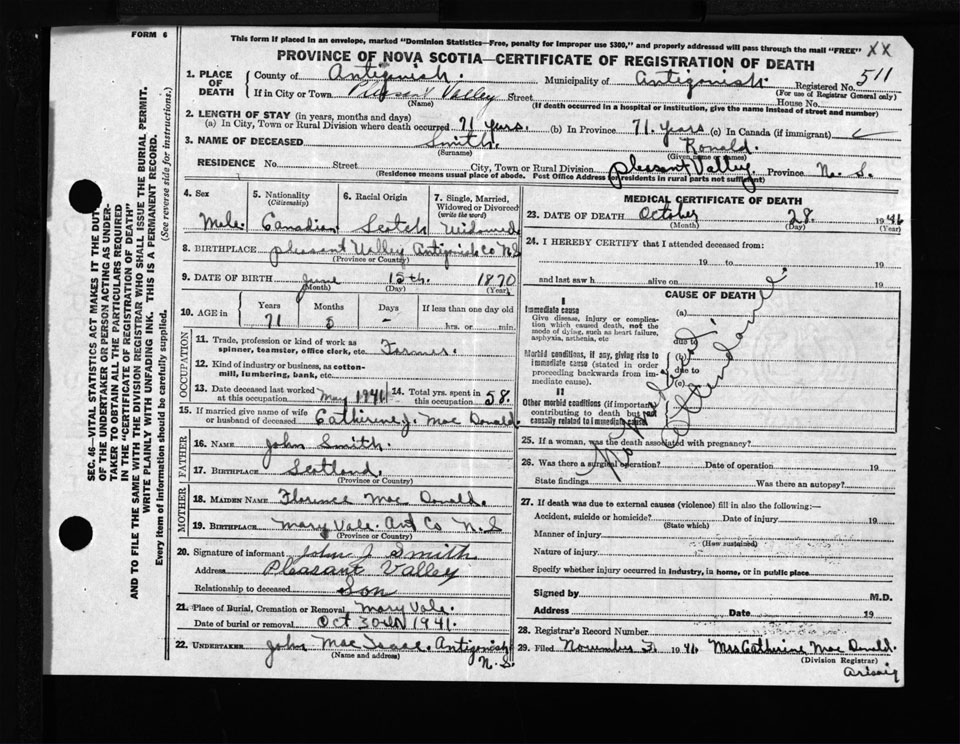 FORM 6
This form if placed in an envelope, marked "Dominion Statistics—Free, penalty for improper use $300," and properly addressed will pass through the mail "FREE" XX
PROVINCE OF NOVA SCOTIA—CERTIFICATE OF REGISTRATION OF DEATH
511
1. PLACE OF DEATH
County of Antigonish. Municipality of Antigonish. Registered No.
(For use of Registrar General only)
If in City or Town Pleasant Valley Street House No.
(Name) (If death occurred in a hospital or institution, give the name instead of street and number)
2. LENGTH OF STAY (in years, months and days)
(a) In City, Town or Rural Division where death occurred 71 years. (b) In Province 71. years (c) In Canada (if immigrant)
3. NAME OF DECEASED Smith. Ronald.
(Surname) (Given name or names)
RESIDENCE No. Street City, Town or Rural Division pleasant Valley. Province N. S.
(Residence means usual place of abode. Post Office Address for residents in rural parts not sufficient)
4. Sex 5. Nationality (Citizenship) 6. Racial Origin 7. Single, Married, Widowed or Divorced (write the word)
Male Canadian Scotch Widowed
8. BIRTHPLACE pleasant Valley Antigonish Co N.S
(Province or Country)
9. DATE OF BIRTH June 15th. 1870
(Month) (Day) (Year)
10. AGE in Years Months Days If less than one day old
71 5 - hrs. or min.
OCCUPATION
11. Trade, profession or kind of work as spinner, teamster, office clerk, etc. Farmer.
12. Kind of industry or business, as cotton-mill, lumbering, bank, etc.
13. Date deceased last worked at this occupation May 1941 14. Total yrs. spent in this occupation 58.
15. If married give name of wife or husband of deceased Catherine J. Mac Donald.
FATHER
16. NAME John Smith.
17. BIRTHPLACE Scotland.
(Province or Country)
MOTHER
18. MAIDEN NAME Florence Mac Donald.
19. BIRTHPLACE Mary Vale. Ant Co N.S
(Province or Country)
20. Signature of informant John J Smith
Address Pleasant Valley
Relationship to deceased Son
21. Place of Burial, Cremation or Removal Mary Vale.
Date of burial or removal Oct 30th 1941.
22. UNDERTAKER John Mac Antigonish
(Name and address) N.S.
MEDICAL CERTIFICATE OF DEATH
23. DATE OF DEATH October 28. 1946
(Month) (Day) (Year)
24. I HEREBY CERTIFY that I attended deceased from:
19 to 19
and last saw h alive on 19
CAUSE OF DEATH
I
Immediate cause (a)
Give disease, injury or complication which caused death, not the mode of dying, such as heart failure, asphyxia, asthenia, etc.
due to
Morbid conditions, if any, giving rise to immediate cause (stated in order proceeding backwards from immediate cause).
(b)
due to
(c)
II
Other morbid conditions (if important) contributing to death but not causally related to immediate cause.
No Medical Attendance
25. If a woman, was the death associated with pregnancy?
26. Was there a surgical operation? Date of operation 19
State findings Was there an autopsy?
27. If death was due to external causes (violence) fill in also the following:—
Accident, suicide or homicide? Date of injury 19
(State which)
Manner of injury
(How sustained)
Nature of injury
Specify whether injury occurred in industry, in home, or in public place
Signed by M.D.
Address Date 19
28. Registrar's Record Number
29. Filed November 3 1946 Mrs Catherine Mac Donald.
(Division Registrar)
Arisaig
SEC. 46—VITAL STATISTICS ACT MAKES IT THE DUTY
OF THE UNDERTAKER OR PERSON ACTING AS UNDER-
TAKER TO OBTAIN ALL THE PARTICULARS REQUIRED
IN THE "CERTIFICATE OF REGISTRATION OF DEATH"
AND TO FILE THE SAME WITH THE DIVISION REGISTRAR WHO SHALL ISSUE THE BURIAL PERMIT.
WRITE PLAINLY WITH UNFADING INK. THIS IS A PERMANENT RECORD.
Every item of information should be carefully supplied. (See reverse side for instructions.)